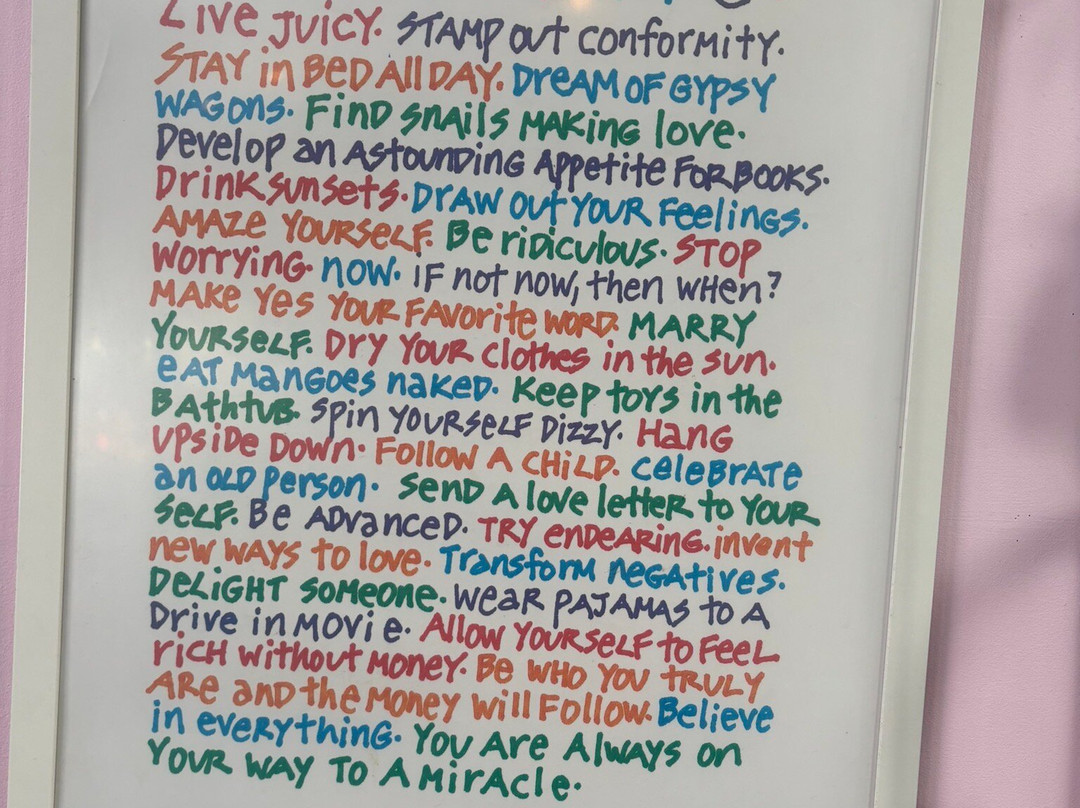 Live Juicy. Stamp out conformity.
Stay in Bed All Day. Dream of Gypsy
Wagons. Find snails making love.
Develop an Astounding Appetite for Books.
Drink sunsets. Draw out your feelings.
Amaze yourself. Be ridiculous. Stop
worrying. now. if not now, then when?
Make yes your favorite word. Marry
yourself. Dry your clothes in the sun.
eat mangoes naked. Keep toys in the
Bathtub. spin yourself dizzy. Hang
upside down. Follow a child. celebrate
an old person. send a love letter to your
self. Be advanced. Try endearing. invent
new ways to love. Transform negatives.
Delight someone. wear pajamas to a
Drive in movie. Allow yourself to feel
rich without money. Be who you truly
are and the money will follow. Believe
in everything. You are always on
your way to a miracle.